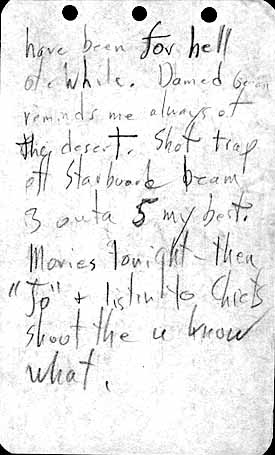 have been for hell
of a while. Damed Ocean
reminds me always of
the desert. Shot trap
off Starboard beam
3 outa 5 my best.
Movies tonight - then
"Jo" + listin to Chiefs
shoot the u know
what.